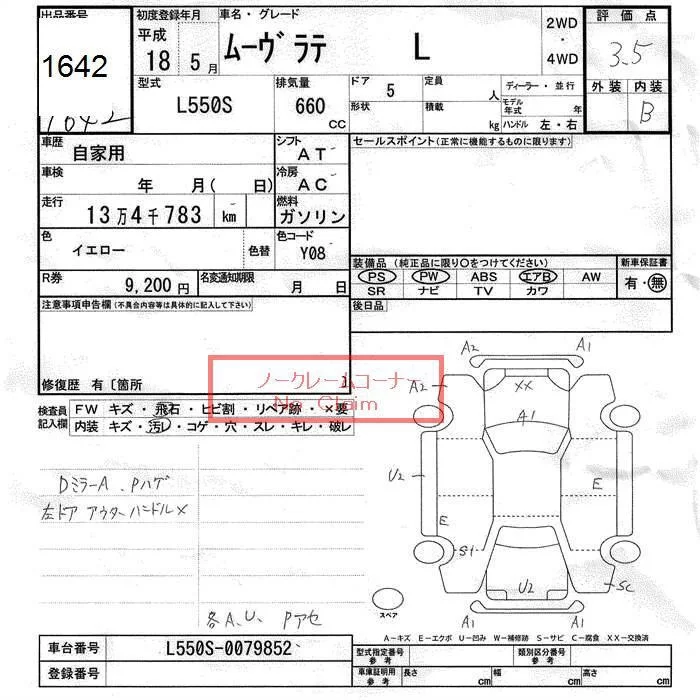 出品番号 初度登録年月 車名・グレード 評価点
1642
11042
平成
18 5月
ムーヴ ラテ L
2WD
・
4WD
3.5
外装 内装
B
型式 排気量 ドア 定員 ディーラー・並行
L550S 660 CC 5 人
形状 積載 kg モデル年式 年
ハンドル 左・右
車歴 自家用 シフト AT セールスポイント(正常に機能するものに限ります)
車検 年 月( 日) 冷房 AC
走行 13万4千783 km 燃料 ガソリン
色 イエロー 色替 色コード Y08
装備品 (純正品に限り〇をつけてください) 新車保証書
PS PW ABS エアB AW 有・無
SR ナビ TV カワ
R券 9,200円 名変通知期限 月 日
後日品
注意事項申告欄(不具合内容等は具体的に記入して下さい)
修復歴 有〔箇所 〕
ノークレームコーナー
No Claim
検査員記入欄
FW キズ・飛石・ヒビ割・リペア跡・×要
内装 キズ・汚レ・コゲ・穴・スレ・キレ・破レ
DミラーA、Pハゲ
左ドア アウターハンドル×
各A、U、 Pアセ
A2 A1
A2 XX
A1
U2 E
E
S1
U2 SC
A1 A1
スペア
A-キズ E-エクボ U-凹み W-補修跡 S-サビ C-腐食 XX-交換済
車台番号 L550S-0079852
登録番号
型式指定番号 参考 類別区分番号 参考
車庫証明用 参考 長さ cm 幅 cm 高さ cm